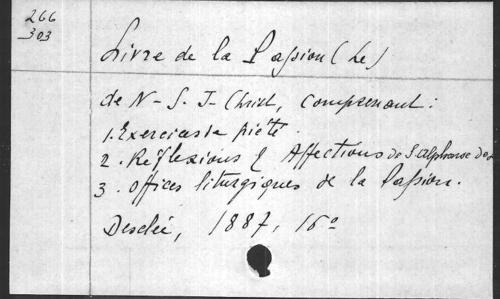 266
303
Livre de la Passion (Le)
de N-S. J-Christ, comprenant:
1. Exercices de piété.
2. Réflexions & Affections de S. Alphonse de L
3. Offices liturgiques de la Passion.
Desclée, 1887, 16°